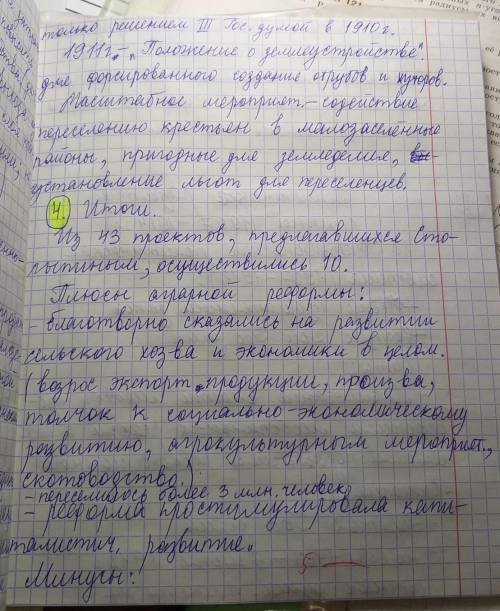 только решением III Гос. думой в 1910 г.
1911 г. – „Положение о землеустройстве".
для форсированного создание отрубов и хуторов.
Масштабное мероприят. – содействие
переселению крестьян в малозаселённые
районы, пригодные для земледелия,
установление льгот для переселенцев.
4. Итоги.
Из 43 проектов, предлагавшихся Сто-
лыпиным, осуществились 10.
Плюсы аграрной реформы:
- благотворно сказались на развитии
сельского хоз-ва и экономики в целом.
(возрос экспорт продукции, произ-ва,
толчок к социально-экономическому
развитию, агрокультурным мероприят.,
скотоводство.)
- переселилось более 3 млн. человек
- реформа простимулировала капи-
талистич. развитие.
Минусы:
5